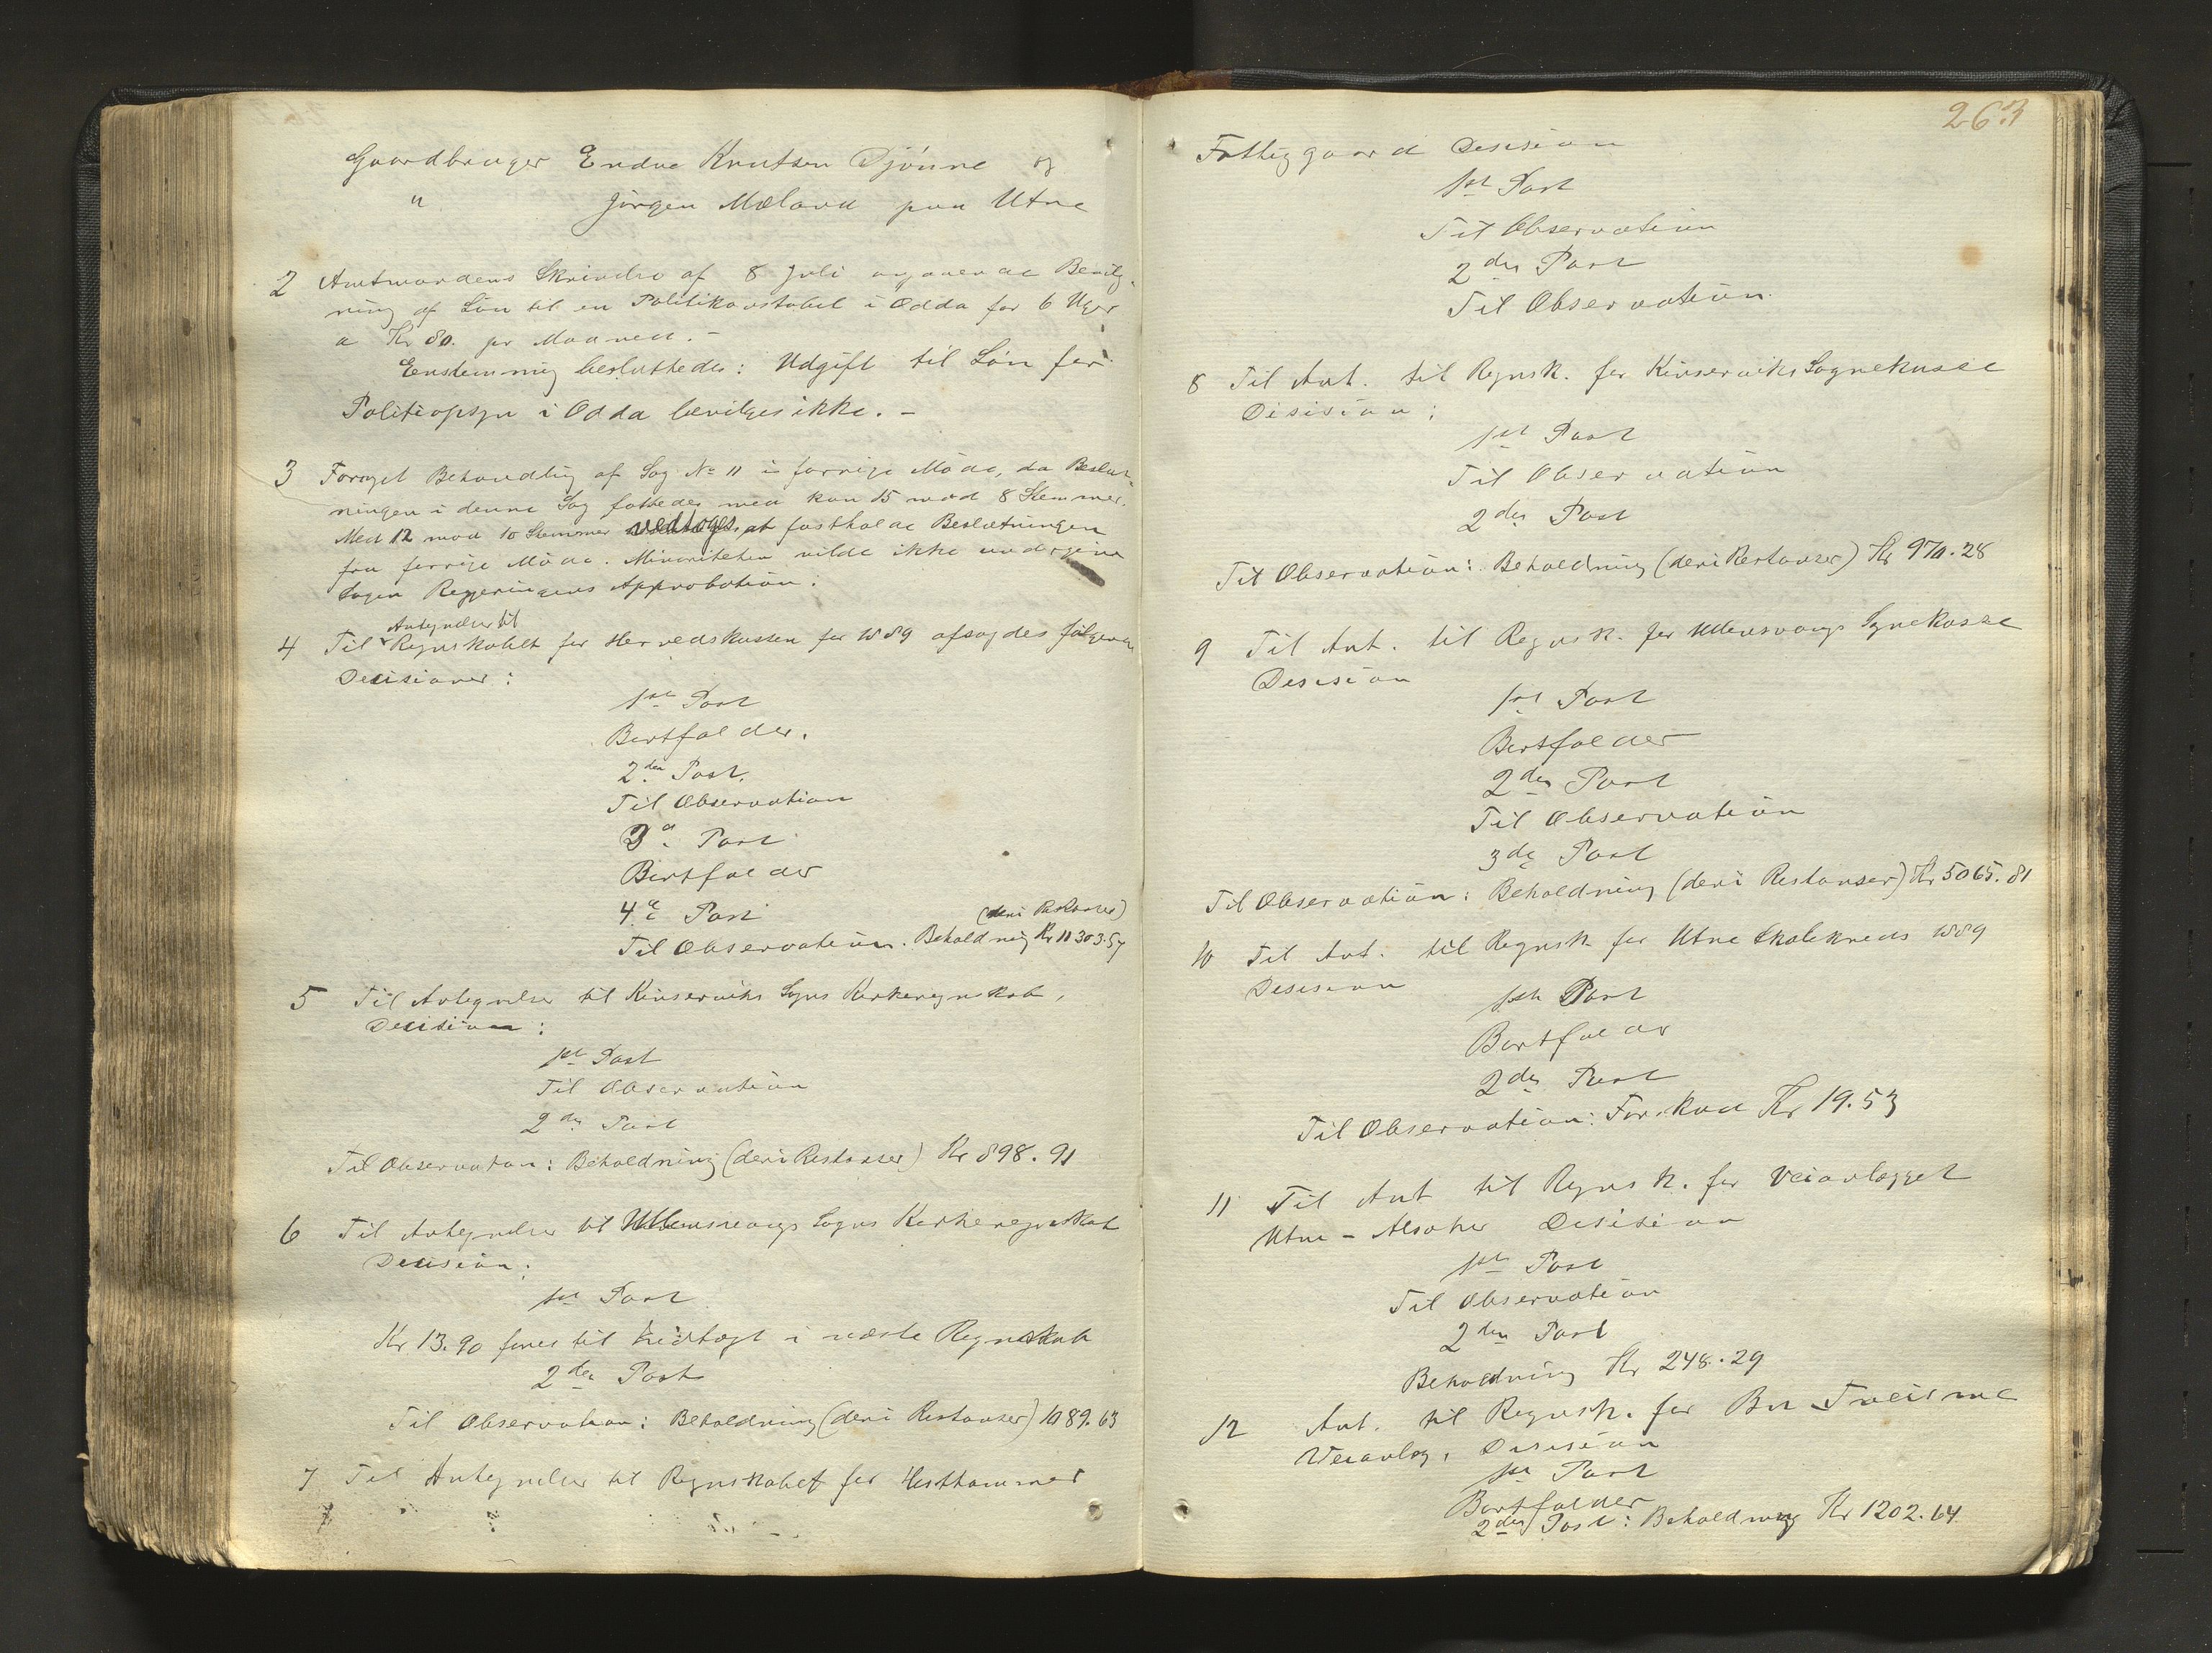 Gaardbruger Endre Knutsen Djönne og
" Jörgen Mæland paa Utne
2 Amtmandens Skrivelse af 8 Juli angaaende Bevilg-
ning af Lön til en Politikonstabel i Odda for 6 Uger
a Kr 80. pr Maaned.-
Enstemmig besluttedes: Udgift til Lön for
Politiopsyn i Odda bevilges ikke. -
3 Fornyet Behandling af Sag No 11 i forrige Möde, da Beslut-
ningen i denne Sag fattedes med kun 15 mod 8 Stemmer.
Med 12 mod 10 Stemmer vedtoges at fastholde Beslutningen
fra forrige Möde. Minoriteten vilde ikke undergive
Sagen Regjeringens Approbation.
Antegnelser til
4 Til Regnskabet for Herredskassen for 1889 afsagdes fölgende
Decisioner:
1ste Post
Bortfalder.
2den Post.
Til Observation
3die Post
Bortfalder
4de Post (deri Restanser)
Til Observation. Beholdning Kr 11303.57
5 Til Antegnelser til Kinserviks Sogns Kirkeregnskab,
Decision:
1ste Post
Til Observation
2den Post
Til Observation: Beholdning (deri Restanser) Kr 898.91
6 Til Antegnelser til Ullensvangs Sogns Kirkeregnskab
Decision:
1ste Post
Kr. 13.90 föres til Indtægt i næste Regnskab
2den Post
Til Observation: Beholdning (deri Restanser) 1089.63
7 Til Antegnelser til Regnskabet for Hesthammer
263
Fattiggaard Desision
1ste Post
Til Observation
2den Post
Til Observation.
8 Til Ant. til Regnsk. for Kinserviks Sognekasse
Disision:
1ste Post
Til Observation
2den Post
Til Observation: Beholdning (deri Restanser) Kr 970.28
9 Til Ant. til Regnsk. for Ullensvangs Sognekasse
Desision
1ste Post
Bortfalder
2den Post
Til Observation
3die Post
Til Observation: Beholdning (deri Restanser) Kr 5065.81
10 Til Ant. til Regnsk for Utne Skolekreds 1889
Desision
1ste Post
Bortfalder
2den Post
Til Observation: Forskud Kr 19.53
11 Til Ant til Regnsk. for Veianlægget
Utne - Alsaker Desision
1ste Post
Til Observation
2den Post
Beholdning Kr 248.29
12 Ant. til Regnsk. for Bu Tveisme
Veianlæg, Desision
1ste Post
Bortfalder
2den Post: Beholdning Kr 1202.64